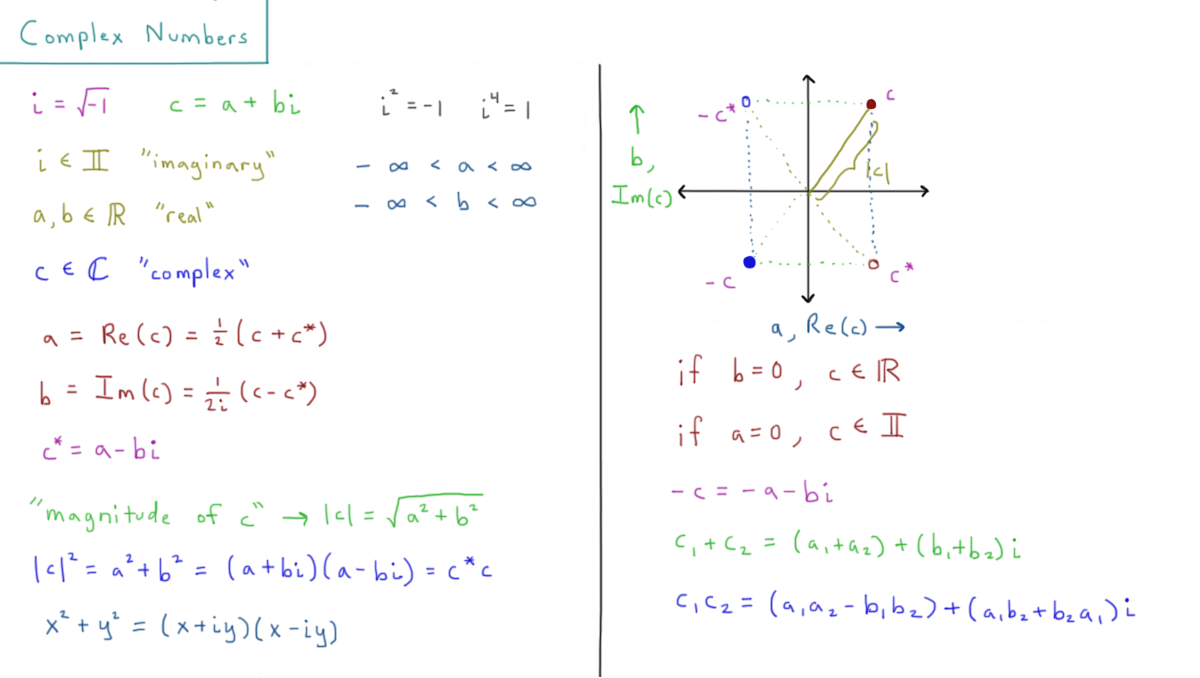 Complex Numbers
i = √-1 c = a + bi i² = -1 i⁴ = 1
i ∈ 𝕀 "imaginary" - ∞ < a < ∞
a, b ∈ ℝ "real" - ∞ < b < ∞
c ∈ ℂ "complex"
a = Re(c) = 1/2 (c + c*)
b = Im(c) = 1/2i (c - c*)
c* = a - bi
"magnitude of c" → |c| = √a² + b²
|c|² = a² + b² = (a + bi)(a - bi) = c*c
x² + y² = (x + iy)(x - iy)
-c* c
↑
b,
Im(c)
|c|
-c c*
a, Re(c) →
if b = 0, c ∈ ℝ
if a = 0, c ∈ 𝕀
-c = -a - bi
c₁ + c₂ = (a₁ + a₂) + (b₁ + b₂)i
c₁c₂ = (a₁a₂ - b₁b₂) + (a₁b₂ + b₂a₁)i